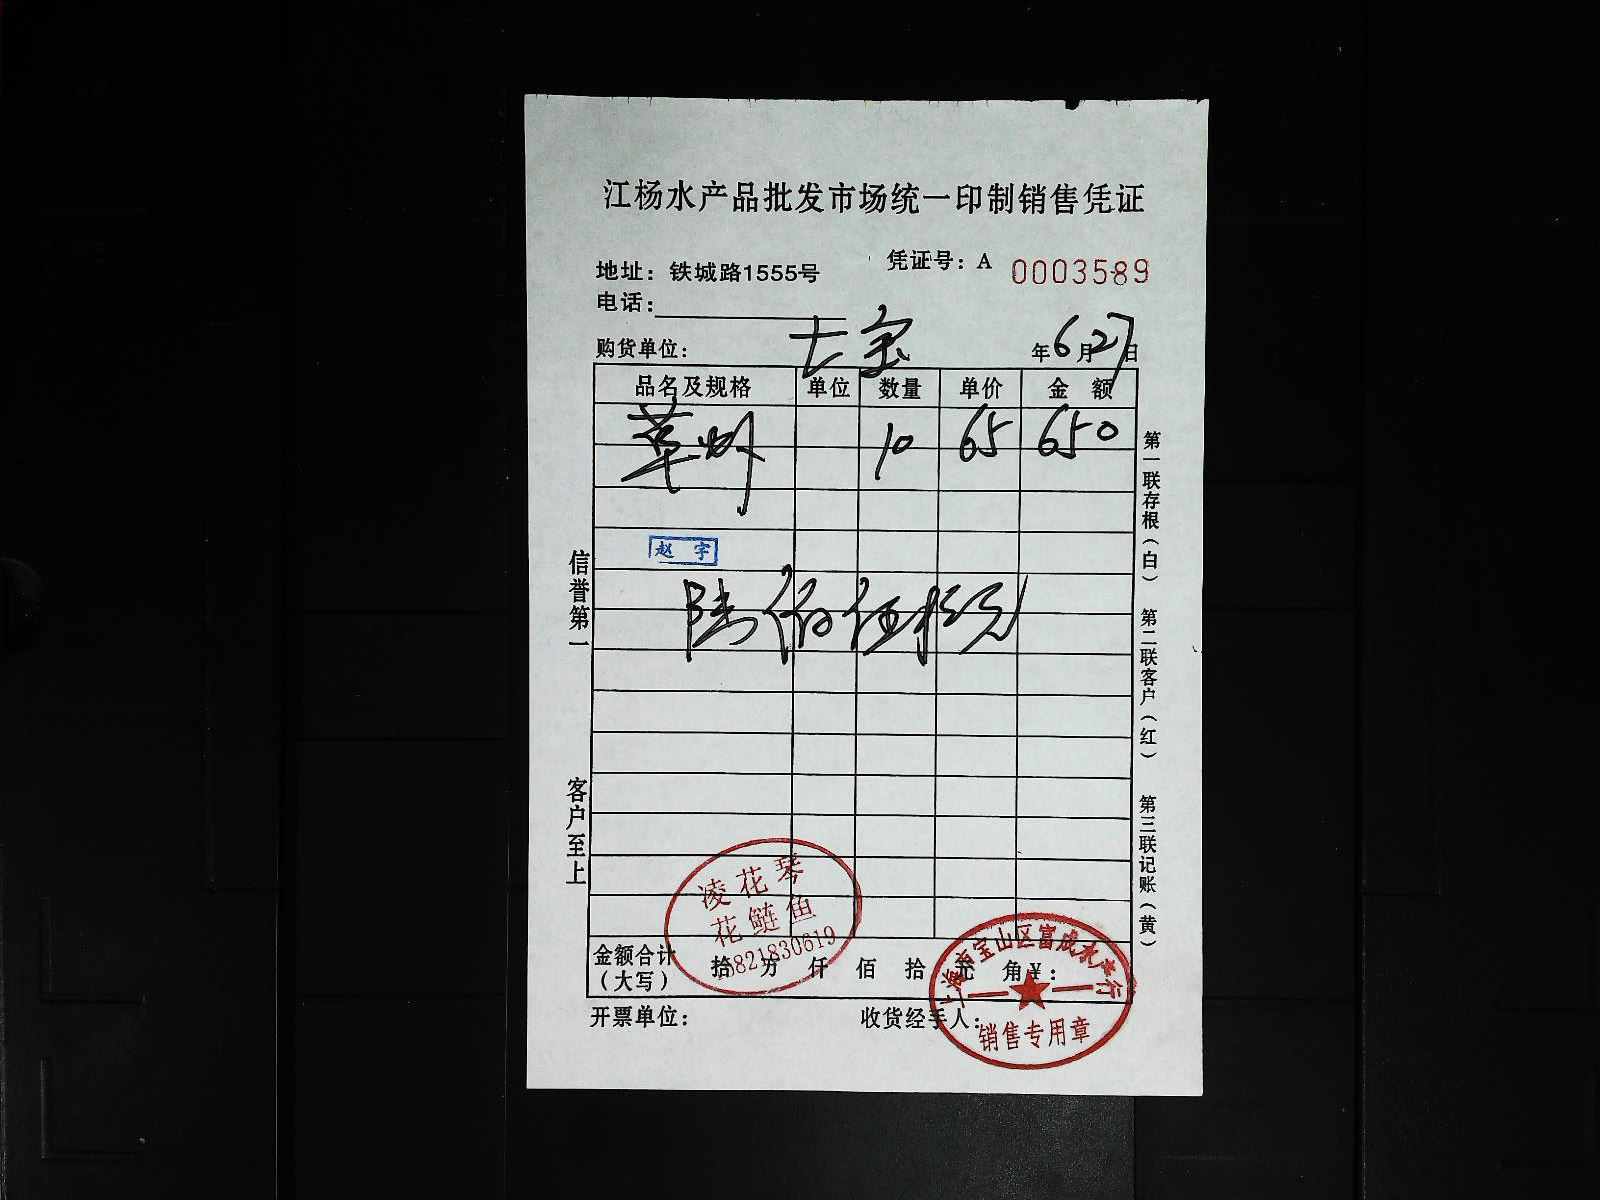 江杨水产品批发市场统一印制销售凭证
地址：铁城路1555号
凭证号：A 0003589
电话：
购货单位： 七宝 年6月27日
品名及规格 单位 数量 单价 金额
草 10 65 650
赵宇
陆佰伍拾元
信誉第一
客户至上
第一联存根（白）
第二联客户（红）
第三联记账（黄）
凌花琴
花鲢鱼
15821830619
金额合计（大写） 拾 万 仟 佰 拾 元 角￥：
上海市宝山区富成水产行
销售专用章
开票单位： 收货经手人：